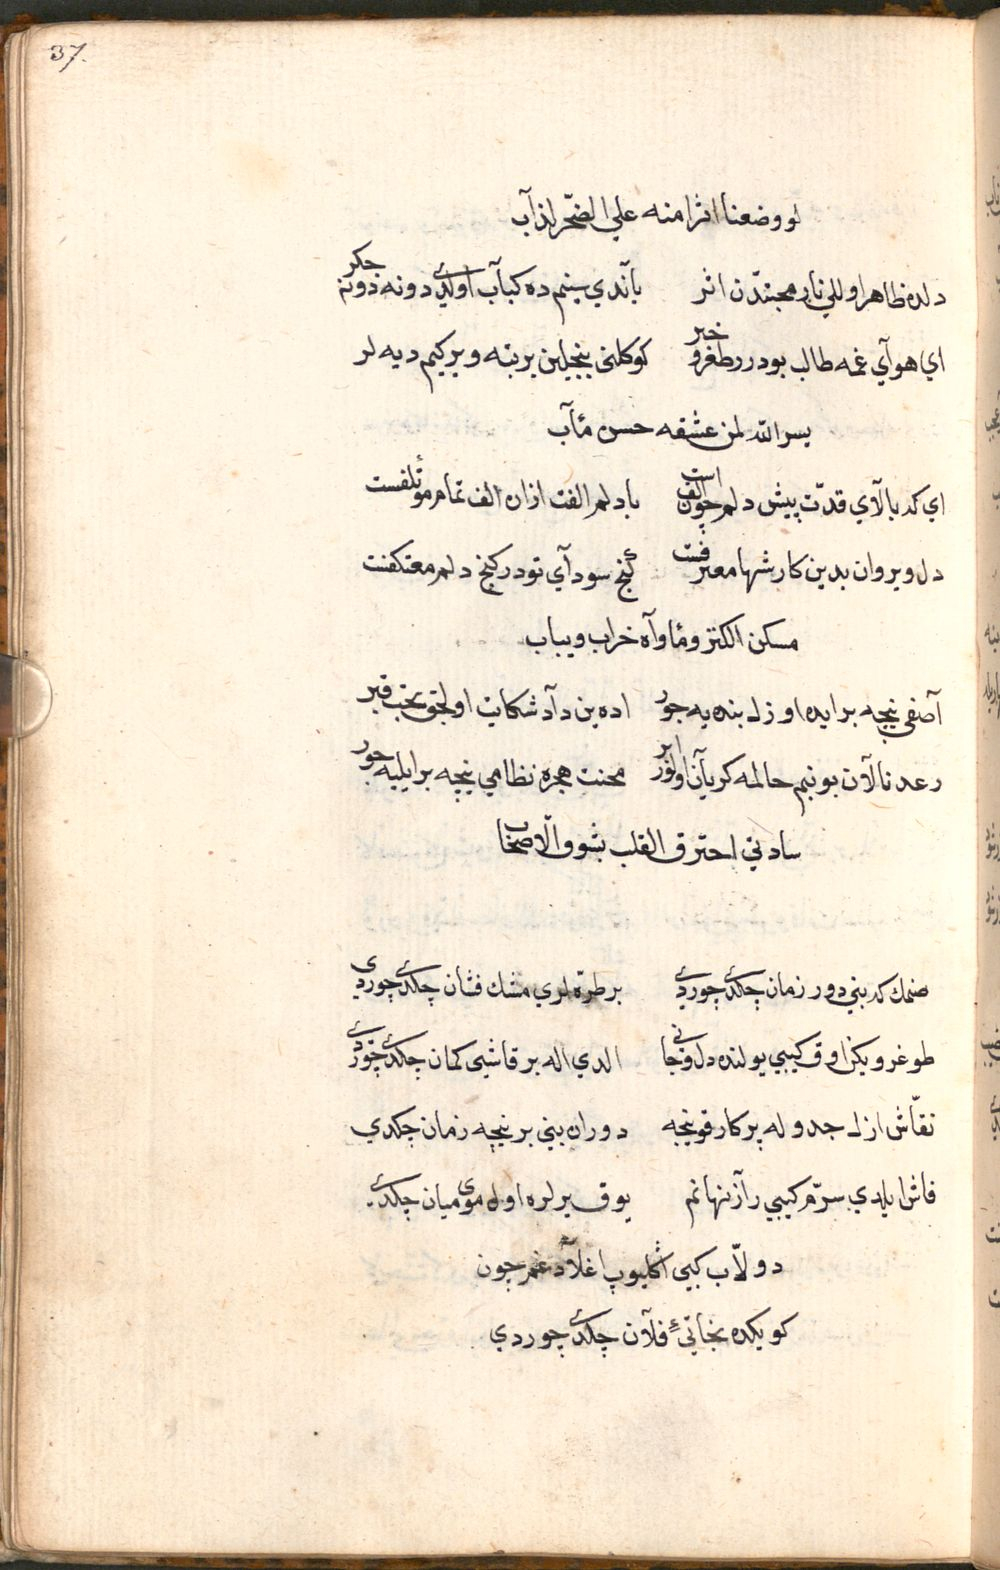 37.
لو وضعنا اثرا منه علي الضخر لذآب
دلده ظاهر اوللي نار محبتدّن اثر ياندي سينم ده كبآب اولدي دونه دونه جكر
اي هوآي غمه طالب بودر طغرو خبر كوكلنى ينجيلين بر بته ويركيم ديه لر
يسر الله لمن عشقه حسن مأب
اي كه بالآي قدّت پيش دلم چون الف است با دلم الفت ازان الف تمام مؤتلفست
دل ويروان بدين كار شها معترفست گنج سودآي تو در كنج دلم معتكفنت
مسكن الكنز ومأوآه خراب ويباب
آصفي نيجه بر ايده اوزل بنده يه جور اده ين دآد شكايت اولجق تحت قبر
رعد نالآن بونيم حالمه كريآن اولور ابر محنت هجره نظامي نيجه بر ايليه جور
سادتي احترق القلب بشوق الاصحاب
صنمك كه بني دور زمان چكدي چوردي بر طرّه لري مشك فشان چكدي چوردي
طوغرو يكن اوق كيبي يولنده دل وجاني الدي اله بر قاشى كمان چكدي چوردي
نقّاش ازل جدوله پركار قونجه دوران بني بر نيجه زمان چكدي
فاش ايلدي سرّم كيبي رآز نهانم يوق يرلره اول موي ميان چكدي
دولاّب كيبي اكليوپ اغلآد غم چون
كويكده نجاتيئ فلآن چكدي چوردي